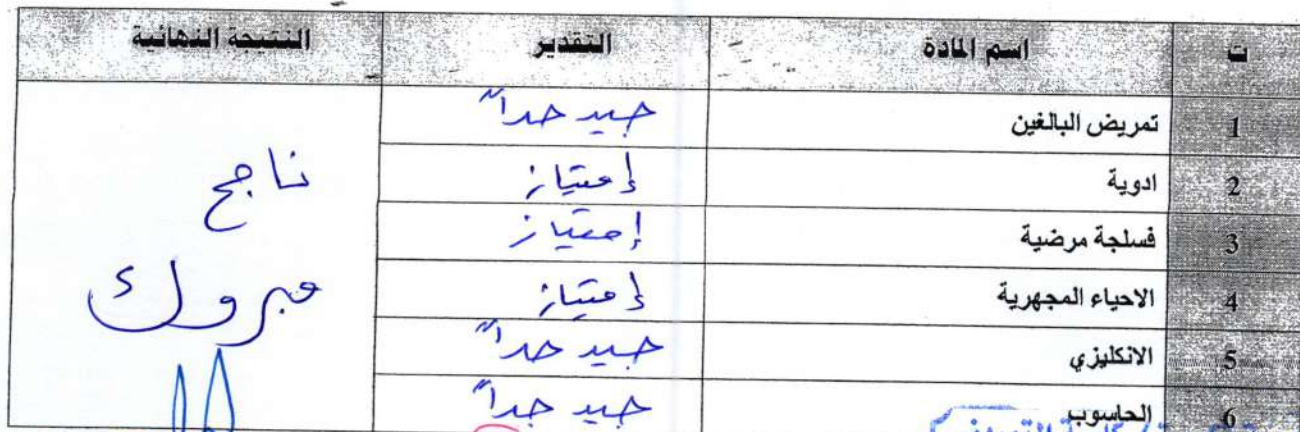 ت اسم المادة التقدير النتيجة النهائية
1 تمريض البالغين جيد جداً
2 ادوية إمتياز
3 فسلجة مرضية إمتياز
4 الاحياء المجهرية إمتياز
5 الانكليزي جيد جداً
6 الحاسوب جيد جداً
ناجح
مبروك